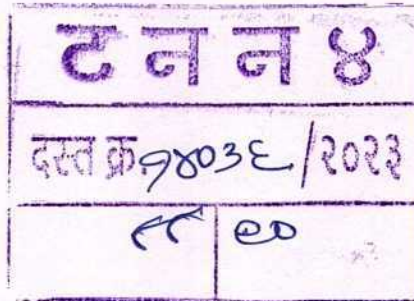 ट न न ४
दस्त क्र. १४०३६/२०२३
११ ९०